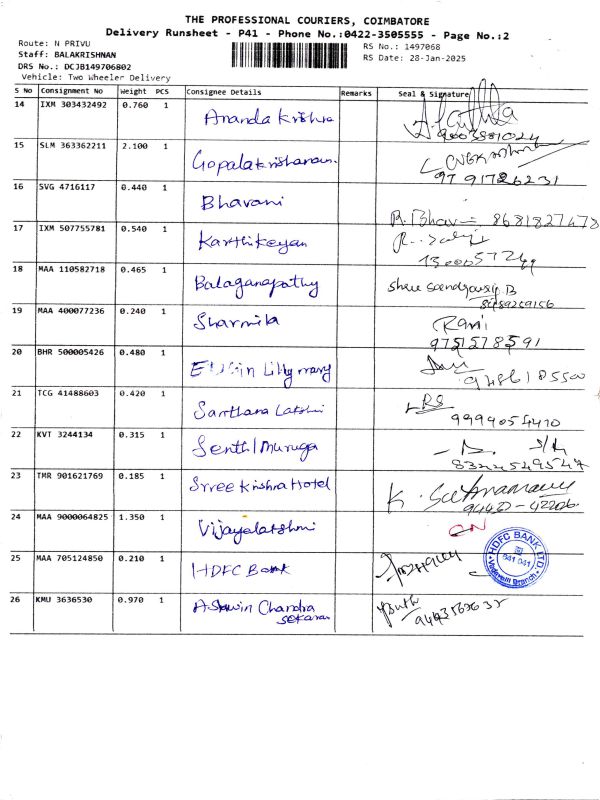 THE PROFESSIONAL COURIERS, COIMBATORE
Delivery Runsheet - P41 - Phone No.:0422-3505555 - Page No.:2
Route: N PRIVU
RS No.: 1497068
Staff: BALAKRISHNAN
RS Date: 28-Jan-2025
DRS No.: DCJB149706802
Vehicle: Two Wheeler Delivery
S No Consignment No Weight PCS Consignee Details Remarks Seal & Signature
14 IXM 303432492 0.760 1 Ananda Krishna
15 SLM 363362211 2.100 1 Gopalakrishanan.
97 91726231
16 SVG 4716117 0.440 1 Bhavani
R. Bhav 8681827478
17 IXM 507755781 0.540 1 Karthikeyan
18 MAA 110582718 0.465 1 Balaganapathy
19 MAA 400077236 0.240 1 Sharmila Rani
9751578591
20 BHR 500005426 0.480 1
21 TCG 41488603 0.420 1 Santhana Lakshmi RS
9999054410
22 KVT 3244134 0.315 1 Senthil Muruga
23 TMR 901621769 0.185 1 Sree Krishna Hotel K.
24 MAA 9000064825 1.350 1 Vijayalakshmi CN
25 MAA 705124850 0.210 1 HDFC Bank
HDFC BANK LTD
641 041
Vadavalli Branch
26 KMU 3636530 0.970 1 Aswin Chandra
sekaran